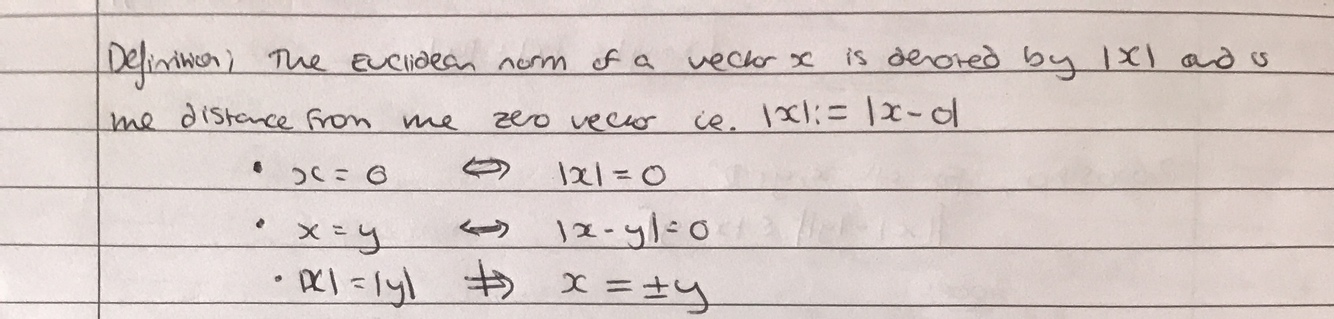 Definition; The Euclidean norm of a vector x is denoted by |x| and is
the distance from the zero vector ie. |x| := |x-0|
• x = 0 ⇔ |x| = 0
• x = y ⇔ |x-y| = 0
• |x| = |y| ⇏ x = ±y